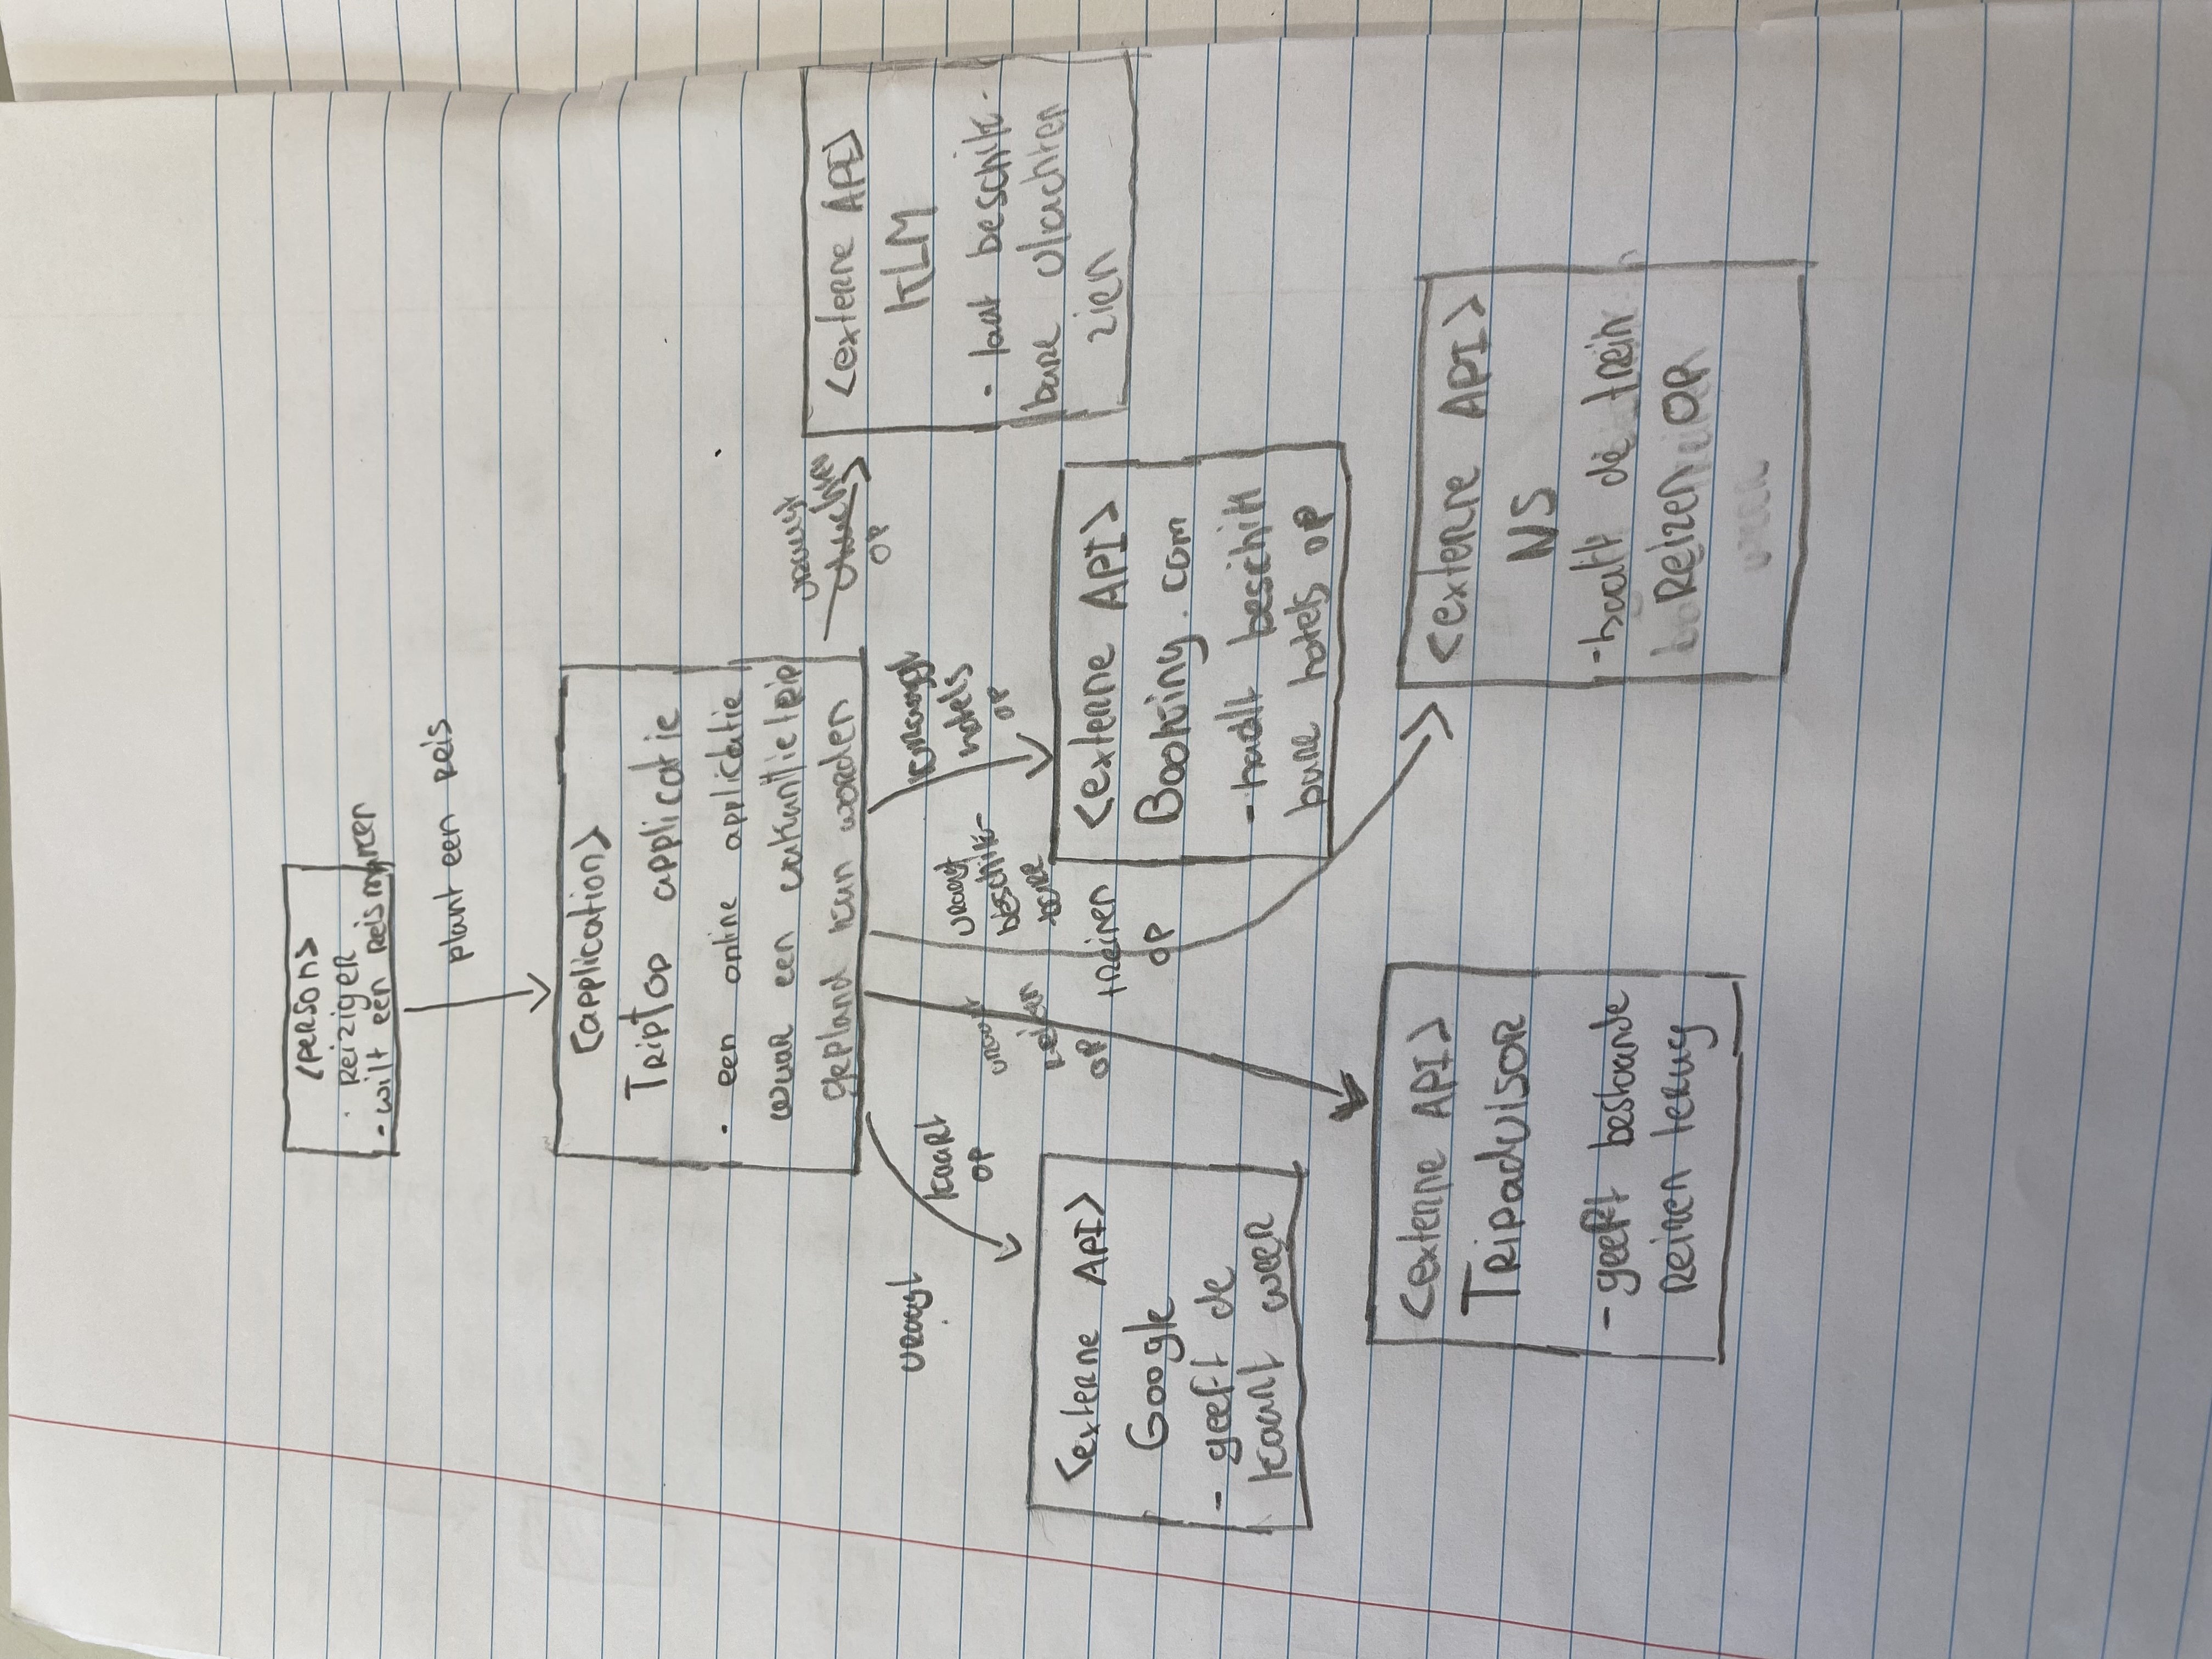 <person>
Reiziger
- wilt een reis maken
plant een reis
<application>
TripTop applicatie
- een online applicatie
waar een vakantietrip
gepland kan worden
vraagt
vluchten
op
<externe API>
KLM
- laat beschik-
bare vluchten
zien
vraagt
kaart
op
vraagt
reizen
op
vraagt
beschik-
bare
treinen
op
vraagt
hotels
op
<externe API>
Google
- geeft de
kaart weer
<externe API>
Booking.com
- haalt beschik
bare hotels op
<externe API>
Tripadvisor
- geeft bestaande
reizen terug
<externe API>
NS
- haalt de trein
reizen op